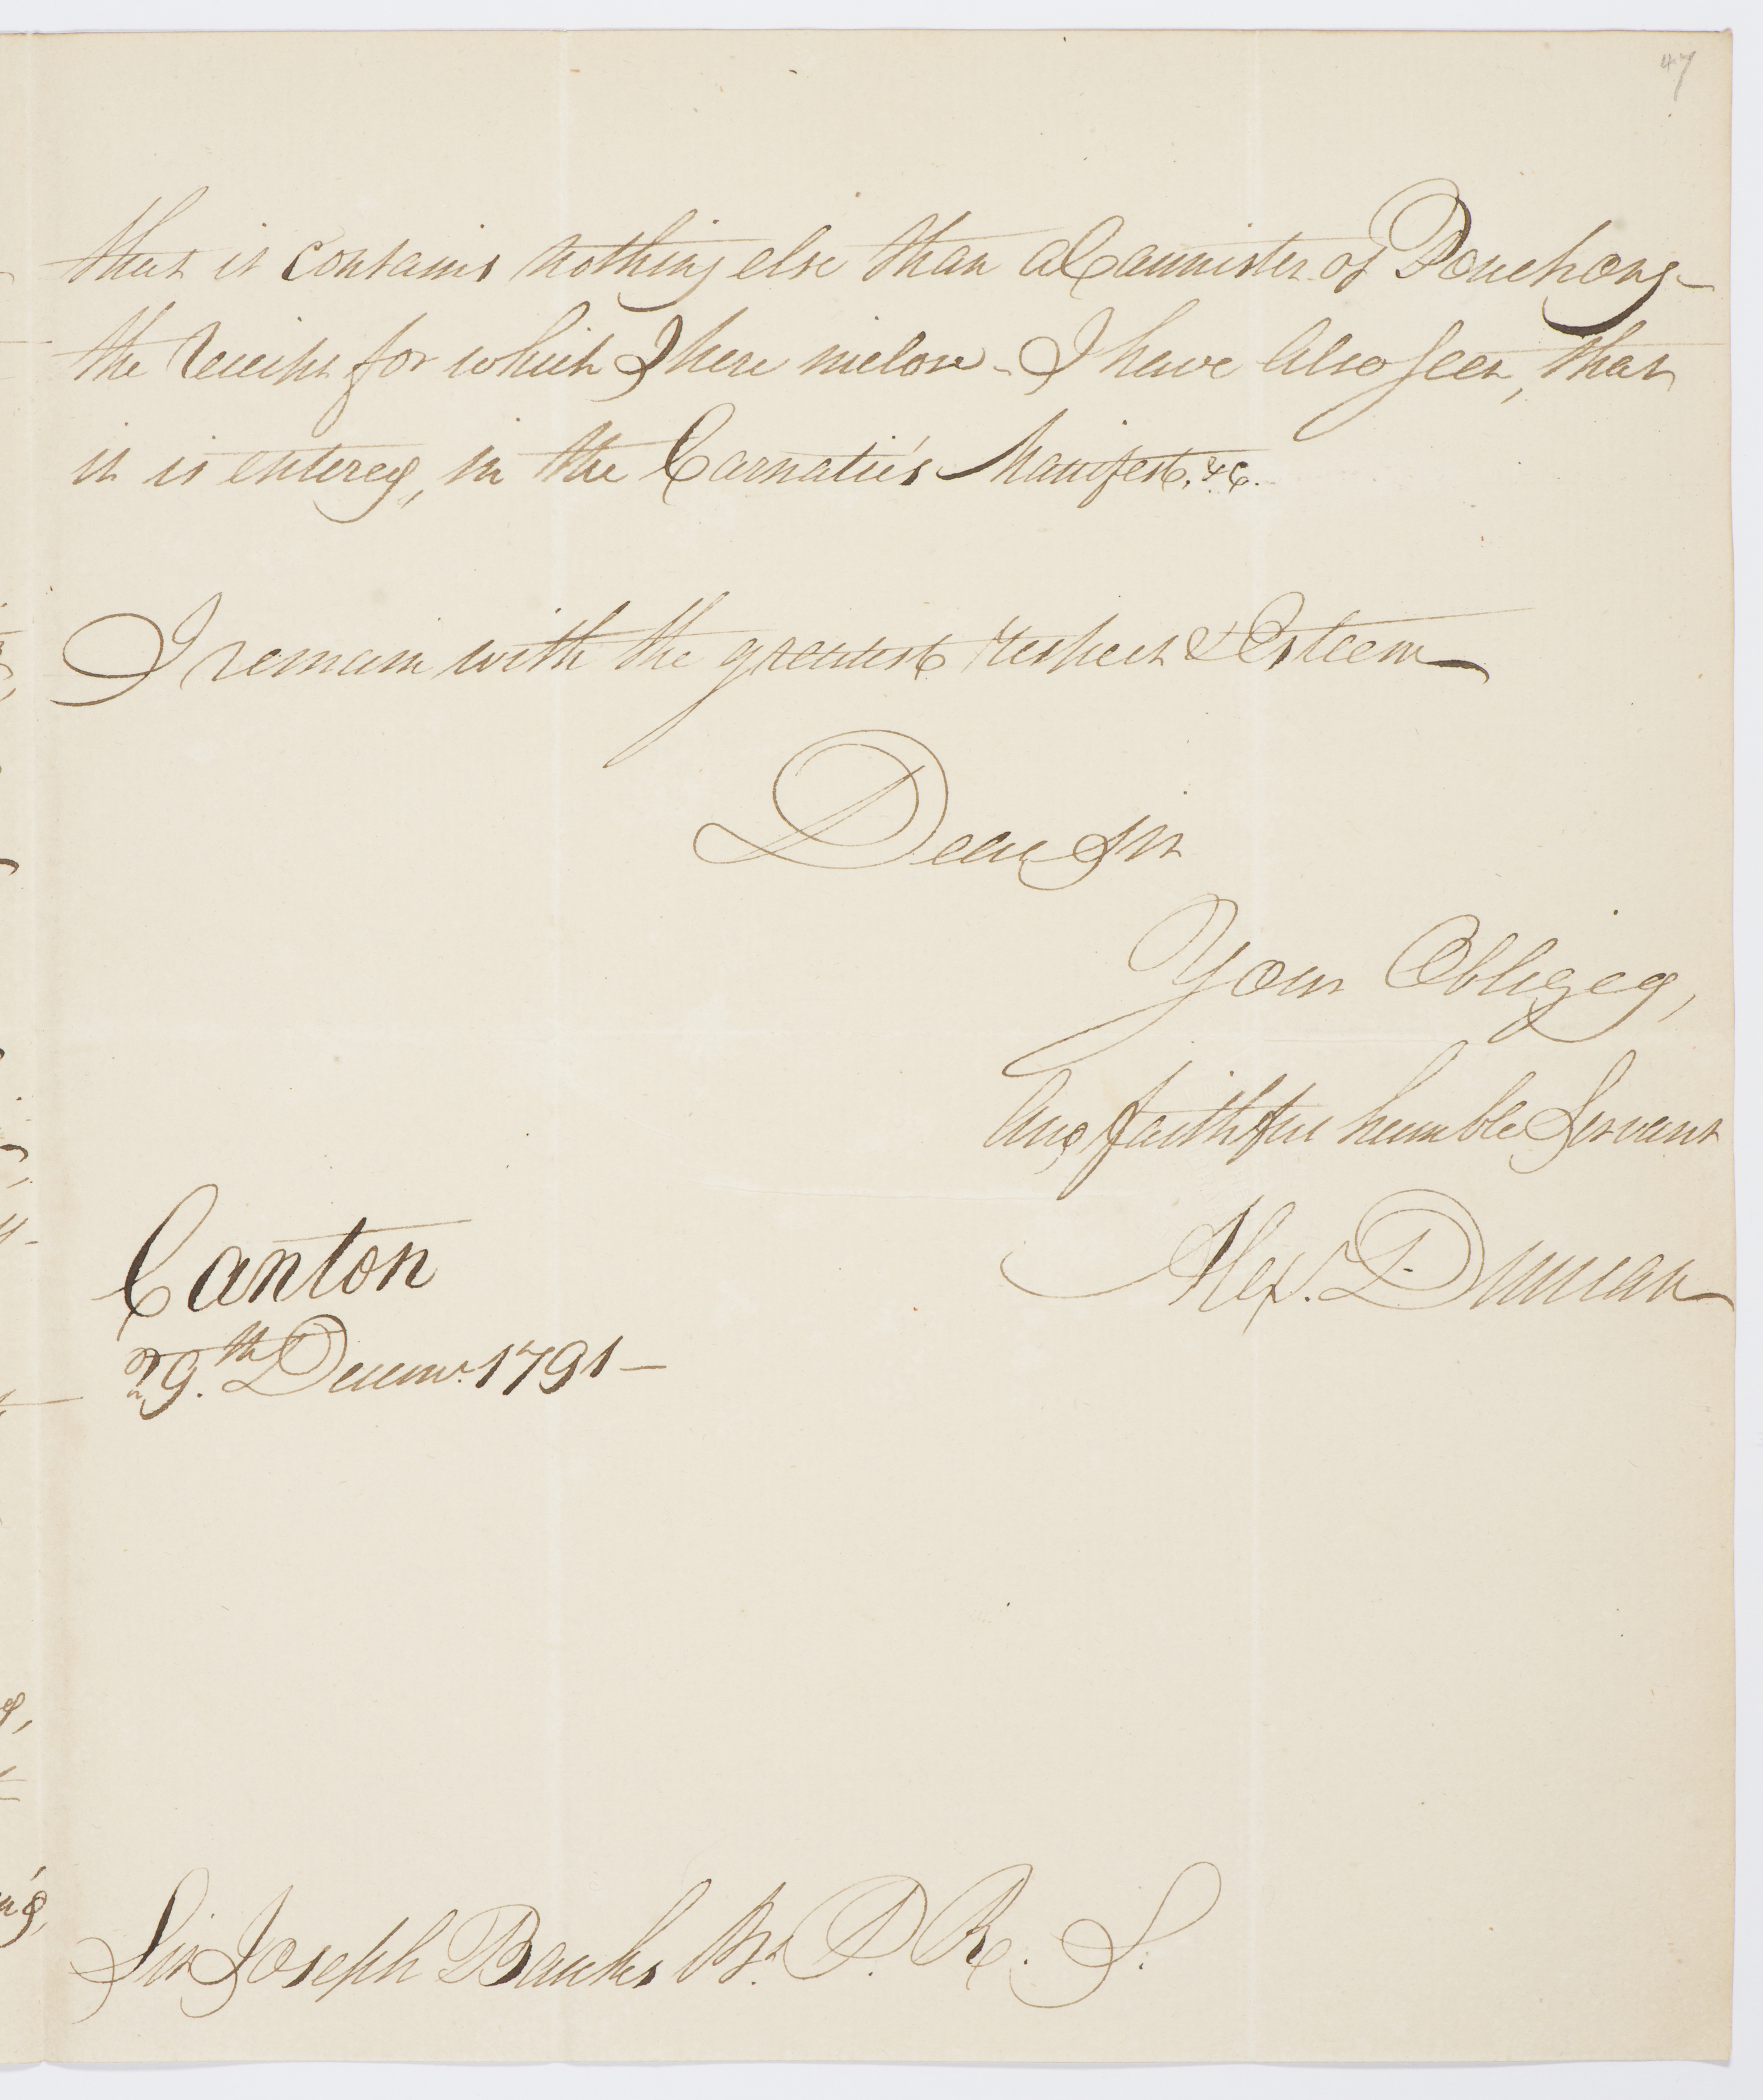 47
that it contains nothing else than a Cannister of Pouchong –
the Receipt for which I here inclose – I have also seen, that
it is entered, in the Carnatic's Manifest, &c.
I remain with the greatest respect & Esteem
Dear Sir
Your Obliged,
And faithful humble Servant
Alex. Duncan
Canton
29.th Decemr. 1791 –
Sir Joseph Banks Bt. P. R. S.